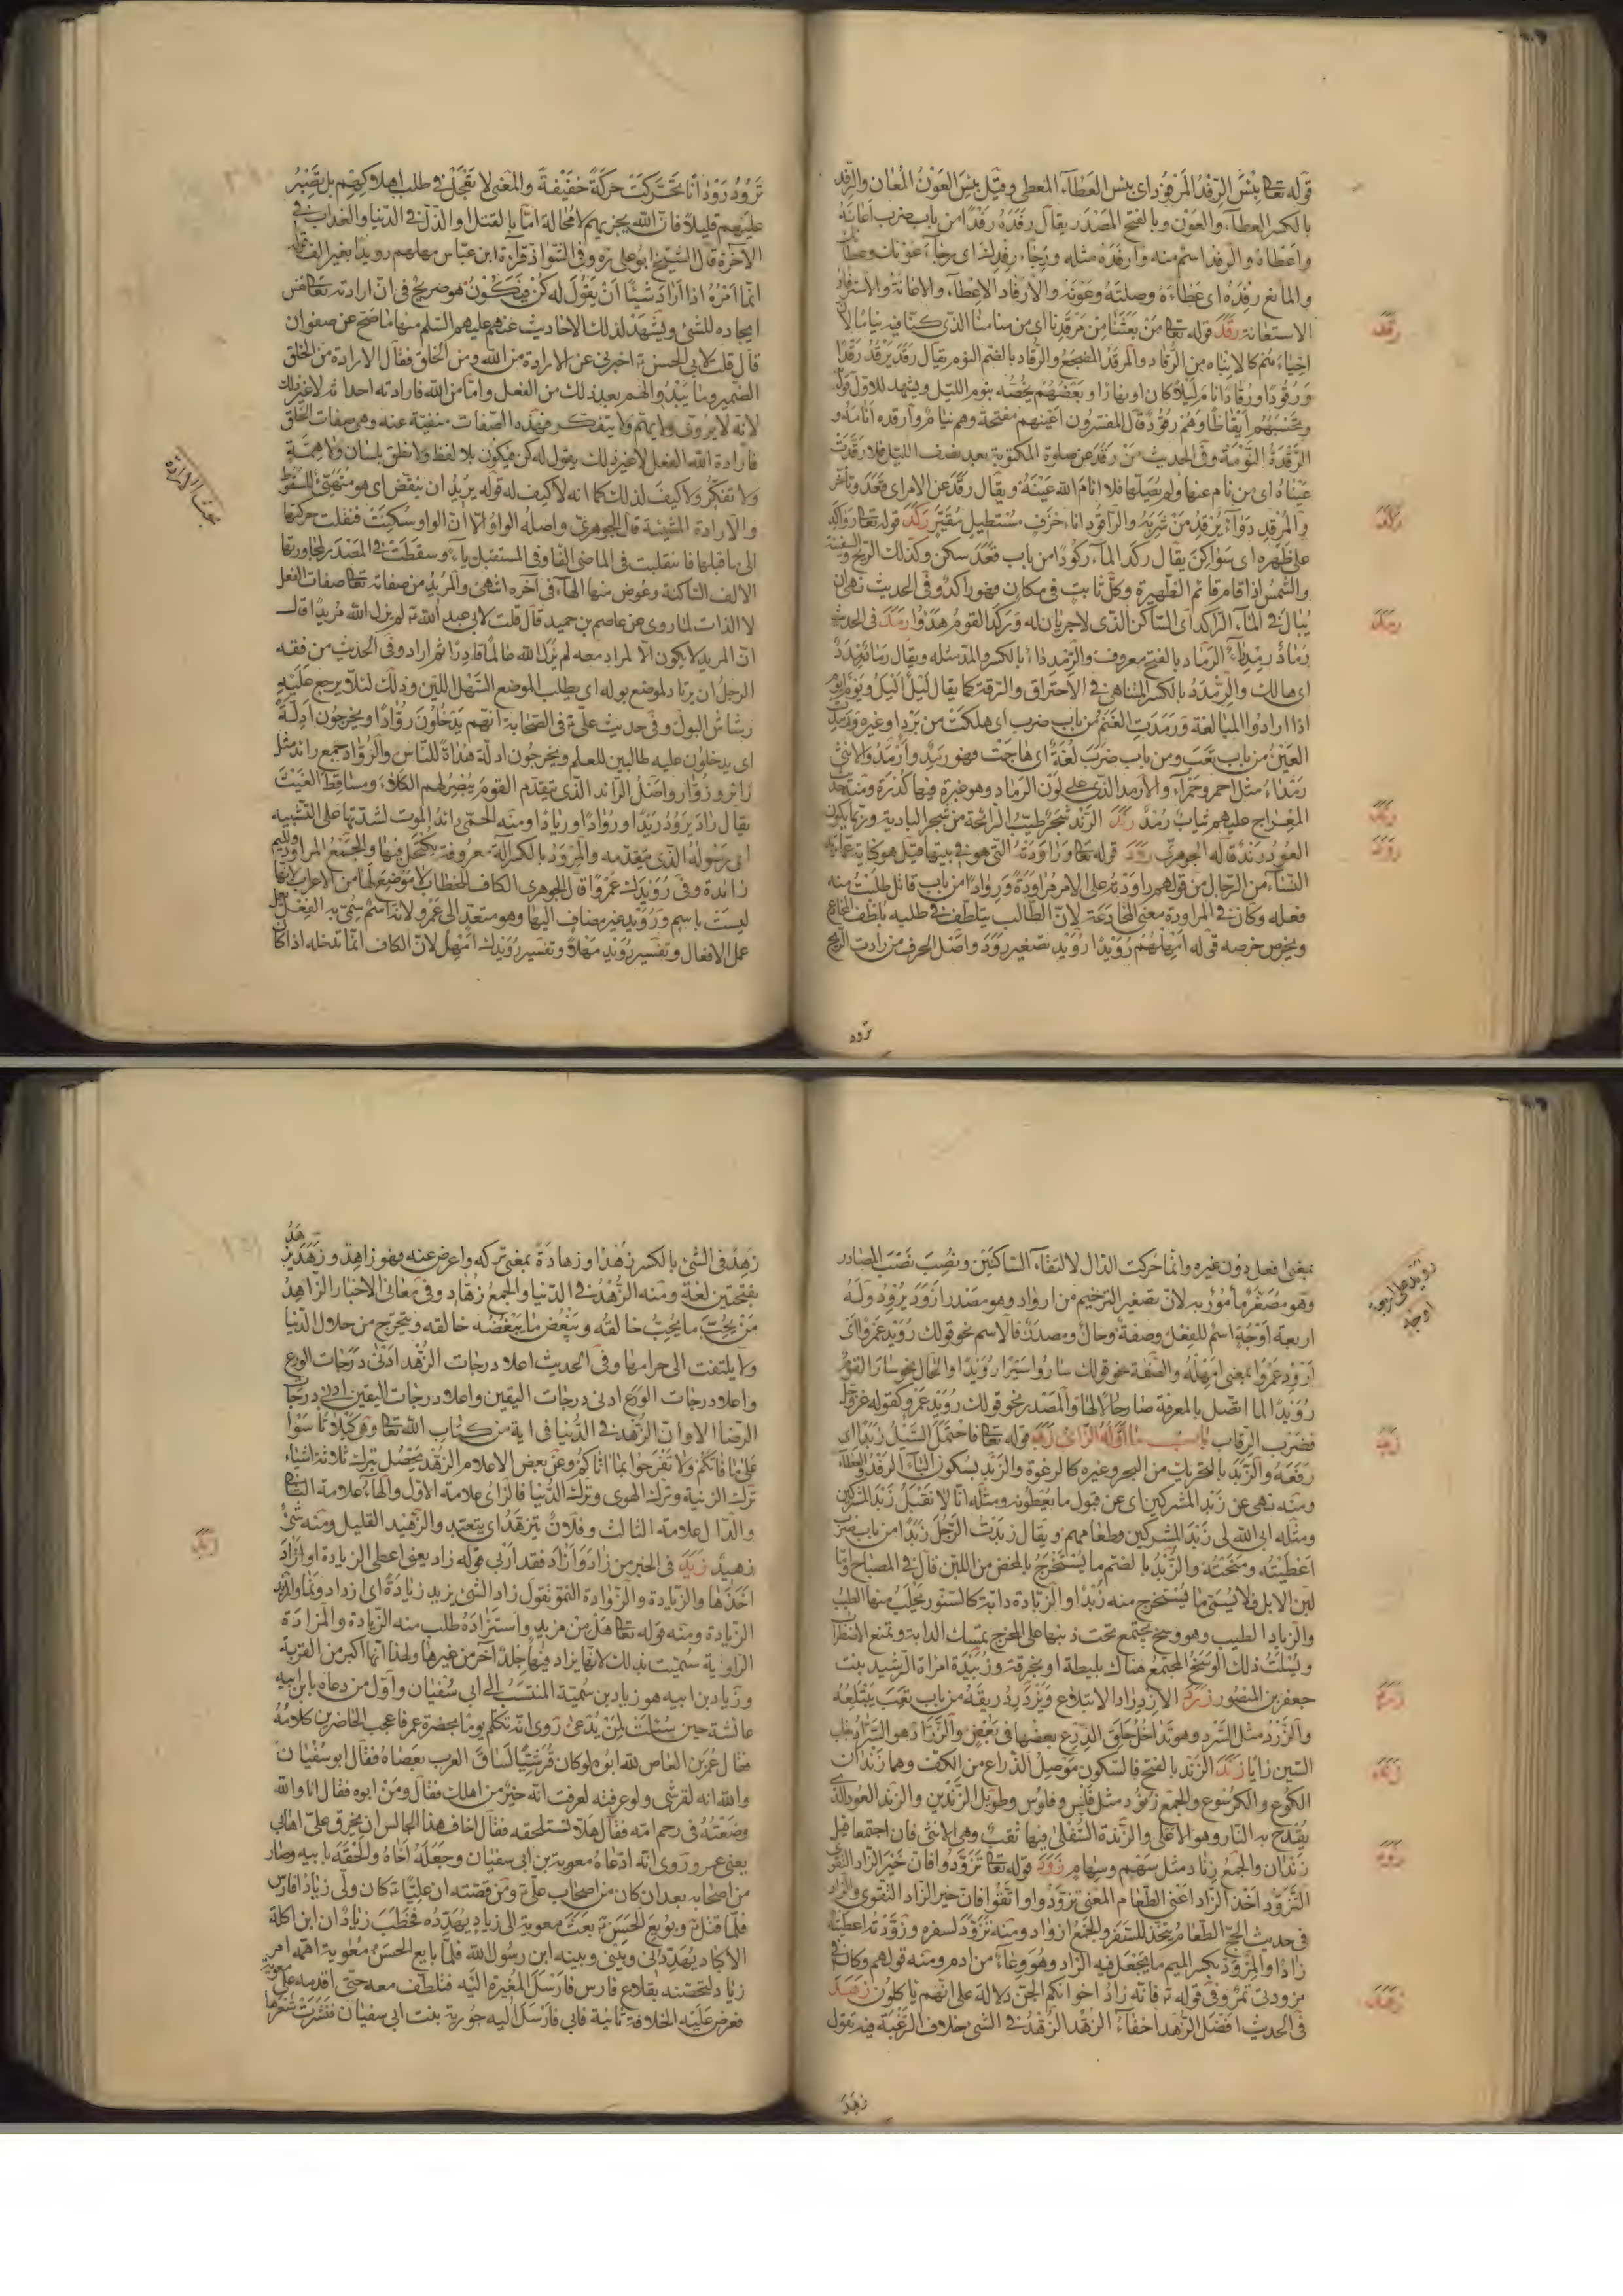 قوله تعا بِئْسَ الرِّفْدُ المَرْفُودُ اى بئس العطآء المعطى وقيل بِئْسَ العَوْنُ المُعان والرِّفد
بالكسر العطآء والعَوْن وبالفتح المصْدر يقال رفَدَهُ رَفْدًا من باب ضرب اعَانَهُ
واعطَاهُ والرفد اسم منه وارفَدَهُ مثله
والمانع رِفْدَه اى عَطَاءَهُ وصِلَتهُ وعَوْنَه والارفاد الاعِطآء والاعانة والاسترفاد
الاستعانة رقَدَ قوله تعا مَنْ بَعَثَنا مِنْ مَرْقَدِنا اى من منامنا الذى كنّا فيه نياما لان
احياءهم كالانباه من الرُّقاد والمرقَدُ المضجَعُ والرُّقاد بالضم النوم يقال رقَدَ يَرْقُدُ رَقْدًا
وَرُقُودًا ورُقادًا نامَ لَيْلًا كان او نهارًا وبَعْضُهُمْ يَخُصُّه بنوم الليل ويشهد للاول قوله
وتَحْسَبُهُمْ اَيْقاظًا وَهُمْ رُقُودٌ قال المفسّرون اعينهم مفتحة وهم نيام وارقده انامه و
الرَّقْدَةُ النَّوْمَة وفى الحديث مَنْ رَقَدَ عن صلوة المكتوبة بعد نصف الليل فلا رقَدَتْ
عَيْناهُ اى من نام عنها ولم يُصَلِّها فلا انامَ الله عَيْنَهُ ويقال رقَدَ عن الامر اى قعَدَ وتأخر
والمُرْقِد دَوَآء يُرْقِدُ مَنْ شَرِبَهُ والراقُود اناء خَزَف مُسْتَطيل مُقَيَّر ركَدَ قوله تعا رَوَاكِدَ
على ظَهْرِه اى سَواكِن يقال ركَدَ المآء رُكُودًا من باب قَعَدَ سكن وكذلك الريح والسفينة
والشمْسُ اذا قام قائم الظَّهيرة وكلّ ثابت فى مكان فهو راكدٌ وفى الحديث نهى ان
يُبالَ فى المآء الراكد اى السّاكن الذى لا جريان له وَركَدَ القومُ هَدَؤُا رمَدَ فى الحديث
رَمادٌ رِمْدِدآءٌ الرَّماد بالفتح معروف والرِّمْدِدَاءُ بالكسر والمدّ مثله ويقال رَمادٌ رِمْدِدٌ
اى هالك والرِّمْدِدُ بالكسر المتناهى فى الاحتراق والدِقَّة كما يقال لَيْلٌ اَلْيَلُ ويَوْمٌ اَيْوَمُ
اذا ارادوا المبالغة وَرَمَدَتِ الغَنَمُ من باب ضرب اى هلكَتْ من بَرْدٍ او غيره ورَمِدَتِ
العَيْنُ من باب تَعِبَ ومن باب ضَرَبَ لُغَةٌ اى هاجَتْ فهو رَمِدٌ وأَرْمَدُ والانثى
رَمْداءُ مثل احمر وحَمْرآء والارمد الذى على لَوْن الرَّماد وهو غبرة فيها كُدْرَة ومنه حديث
المِعْراج عليهم ثيابٌ رُمْدٌ رندَ الرَّنْد شَجَرٌ طَيِّبُ الرائحة من شجر البادية وربّما يكون
العُودُ رَنْدًا قاله الجوهرىّ رودَ قوله تعا وَراوَدَتْهُ الَّتي هو فى بيتها قيل هو كناية عمّا تريد
النّسَآء من الرّجال من قولهم راوَدْتُه على الامر مُراوَدَةً ورِوادًا من باب قاتل طَلَبْتُ منه
فعله وكان فى المراودة معنى المخادَعَة لانّ الطالب يتلطّف فى طلبه تلَطّف الخادع
ويحرص حرصه قوله اَمْهِلْهُمْ رُوَيْدًا رُوَيْد تصغير رَوْد واصْل الحرف من رادت الريح
تَرُود
تَرُودُ رَوَدانًا تَحَرَّكَتْ حَرَكَةً خَفيفَةً والمعْنى لا تَعْجَلْ فى طلب اهلاكِهِم بل تَصَبَّرْ
عليهم قليلًا فانّ الله يجزيهم لا مُحالة امّا بالقتل او الذُّلّ فى الدّنيا والعذاب فى
الآخرة قال الشيخ ابو على ره وفى الشواذ قرآءة ابن عبّاس مهلهم رويدًا بغير الف قوله
اِنَّما اَمْرُهُ اِذا اَرادَ شَيْئًا اَنْ يَقُولَ لَهُ كُنْ فَيَكُونُ هو صريح فى انّ ارادته تعا نفس
ايجاده للشئ ويَشْهَدُ لذلك الاحاديث عنهم عليهم السّلم منها ما صَحّ عن صفوان
قال قلت لابى الحسن ع اخبرنى عن الارادة من الله ومن الخلق فقال الارادة من الخلق
الضّمير وما يَبْدُو لهم بعد ذلك من الفعل وامّا من الله فارادته احداثه لا غير ذلك
لانه لا يُرَوّى ولا يهمّ ولا يتفكّر فهذه الصّفات منفيّة عنه وهى صفات الخلق
فارادة الله الفعل لا غير ذلك يقول له كن فيكون بلا لفظ ولا نطق بلسان ولا هِمَّة
ولا تفكّر ولا كيفَ لذلك كما انه لا كيف له قوله يريد ان ينقضّ اى هو مُتَهَيّئ للسقوط
والارادة المشيئة قال الجوهرىّ واصله الواو الّا انّ الواو سُكِّنَتْ فنقلت حركتها
الى ما قبلها فانقلبت فى الماضى الفًا وفى المستقبل يآء وسقَطَتْ فى المصْدَر لمجاورتها
الالف السّاكنة وعُوّض منها الهآء فى آخره انتهى والمُريدُ من صفاته تعا صفات الفعل
لا الذات لما روى عن عاصم بن حميد قال قلت لابى عبد الله ع لم يزل الله مُريدًا قال
انّ المريد لا يكون الّا لمراد معه لم يَزَلِ الله عالمًا قادِرًا ثم اراد وفى الحديث من فقه
الرجلُ ان يرتاد لموضع بوله اى يطلب الموضع السَّهْل اللين وذلك لئلّا يرجع علَيْه
رشاش البول وفى حديث علىّ ع فى الصّحابة انهم يَدْخُلُونَ رُوّادًا ويخرجُون اَدِلَّةً
اى يدخلون عليه طالبين للعلم ويخرجون ادلّة هُداة للنّاس والرُّوّاد جمع رائد مثل
زائر وزُوّار واصْل الرائد الذى يتقدّم القومَ يُبْصِرُ لهم الكلاءَ ومساقِطَ الغَيْث
يقال رادَ يَرُودُ رَيْدًا ورُوادًا ورِيادًا ومنه الحُمّى رائدُ الموت لشدّتها على التّشبيه
اى رَسُولُهُ الذى يتقدّمه والمِرْوَدُ بالكسر آلة معروفة يُكْتَحَل فيها والجَمْع المراود والميم
زائدة وفى رُوَيْدَك عَمْرًا قال الجوهرى الكاف للخطاب لا مَوْضِع لها من الاعراب لانها
لَيسَتْ باسم ورُوَيْد غير مضاف اليها وهو متعدّ الى عَمْرو لانّه اسْمٌ سُمّى به الفِعْل
عمل الافعال وتفسير رُوَيْد مَهْلًا وتفسير رُوَيْدَك اَمْهِل لانّ الكاف انّما تدخله اذا كان
بحث الارادة
بمعنى افعل دون غيره وانّما حُركت الدّال لالتقآء السّاكنين ونُصِبَ نَصْبَ المصادر
وهو مُصَغّر مأمُور به لانّ تصغير الترخيم من ارواد وهو مصدر اَرْوَدَ يُرْوِدُ وله
اربعة اَوْجُه اسْم للفِعل وصفة وحال ومصدر فالاسم نحو قولك رُوَيْدَ عَمْرًا اى
اَرْوِدْ عَمْرًا بمعنى اَمْهِلْهُ والصّفة نحو قولك ساروا سَيْرًا رُوَيْدًا والحال نحو سارَ القومُ
رُوَيْدًا لمّا اتّصل بالمعرفة صار حالًا لها والمصْدر نحو قولك رُوَيْدَ عَمْرٍو كقوله عزّوجلّ
فضَرْبَ الرِّقاب باب ما اوّله الزّاى زبَدَ قوله تعا فَاحْتَمَلَ السَّيْلُ زَبَدًا اى
رفَعَهُ والزَّبَد بالتحريك من البحر وغيره كالرغوة والزَّبْد بسكون البآء الرفد والعطآء
ومنه نهى عن زَبْد المشركين اى عن قبول ما يُعطُونه ومثله انّا لا نَقْبَلُ زَبْدَ المشركين
ومثله ابى الله لى زَبْدَ المشركين وطعامهم ويقال زبَدْتُ الرَّجُلَ زَبْدًا من باب ضَرَبَ
اَعْطَيْتُه ومَنَحْتُه والزُّبْدُ بالضم ما يُسْتَخْرَجُ بالمخض من اللبن قال فى المصباح وامّا
لبن الابل فلا يُسَمّى ما يُسْتَخرج منه زُبْدًا والزّبادة دابّة كالسّنّور يُحْلَبُ منها الطيب
والزباد الطيب وهو وسخ يجتمع تحت ذنبها على المخرج تُمسك الدابة وتمنع الاضطراب
ويُسْلَت ذلك الوسَخُ المجتمع هناك بليطة او بخرقة وزُبَيْدَة امراة الرشيد بنت
جعفر بن المنصُور زردَ الازدِراد الابتلاع ويَزْدَرِدُ ريقَهُ من باب تعِبَ يَبْتَلِعُه
والزَّرْد مثل السَّرد وهو تداخُل حَلَق الدّرع بعضها فى بَعْض والزّرّاد هو السّرّاد بقلب
السّين زايًا زندَ الزَّنْد بالفتح فالسّكون مَوْصِلُ الذّراع من الكفّ وهما زَنْدان
الكوع والكرْسُوع والجمْع زُنُود مثل فَلْس وفلوس وطويل الزَّنْدين والزند العود الذى
يُقْدَح به النّار وهو الاعلى والزَّنْدة السُّفلى فيها ثَقْب وهى الانثى فان اجتمعا قيل
زَنْدان والجمعُ زِناد مثل سَهْم وسِهام زوَدَ قوله تعا تَزَوَّدُوا فَاِنَّ خَيْرَ الزّادِ التَّقْوى
التَّزَوُّد اَخْذ الزّاد اَعْنى الطّعام المعنى تزوّدوا واتّقوا فانّ خير الزاد التقوى والزاد
فى حديث الحجّ الطّعام يُتّخَذُ للسَّفر والجَمْعُ ازواد ومنه تَزَوَّدَ لسفره وزَوّدْتُه اعطيتُه
زادًا والمِزْوَدُ بكسر الميم ما يُجْعَل فيه الزاد وهُوَ وِعآءٌ من ادم ومنه قولهم وكان فى
مزودى تمرٌ وفى قوله ع فانّه زادُ اخوانكم الجنّ دلالة على انّهم ياكلون زهدَ
فى الحديث افْضَل الزُّهد اخفآءُ الزهد الزُّهْدُ فى الشئ خلاف الرَّغْبَة فيه تقول
رويد على اربعة
اوجه
زهدَ
زهِدَ فى الشئ بالكسر زُهْدًا وزهادَةً بمعنى تركه واعرض عنه فهو زاهِد وزَهَدَ يَزْهَدُ
بفتحتين لغة ومنه الزُّهْدُ فى الدّنيا والجمع زُهّاد وفى معانى الاخبار الزاهِدُ
مَنْ يُحِبُّ ما يُحِبُّ خالقُه ويُبْغِض ما يُبْغِضُه خالقه ويتحرّج من حلال الدّنيا
ولا يلتفت الى حرامها وفى الحديث اعلا درجات الزُّهْد اَدْنى درَجات الورع
واعلا درجات الورَع ادنى درجات اليقين واعلا درجات اليقين ادنى درجات
الرضا الا وانّ الزُّهْدَ فى الدُّنيا فى اية من كتاب الله تعا وهى لِكَيْلا تَاْسَوْا
عَلى ما فاتَكُمْ وَلا تَفْرَحُوا بِما اتاكُمْ وعَنْ بعض الاعلام الزهْد يَحْصُل بترك ثلاثة اشيآء
ترك الزينة وترك الهوى وترك الدّنيا فالزاى علامة الاوّل والهآء علامة الثانى
والدّال علامة الثالث وفلانٌ يتزهّدُ اى يتعبّد والزّهيد القليل ومنه شَئٌ
زهيدٌ زيَدَ فى الخبر من زادَ وَازْدادَ فقد اَرْبى قوله زاد يعنى اعطى الزيادة او ازداد
اَخَذَها والزيادة والزّوادة النموّ تقول زاد الشئ يزيد زِيادَةً اى ازداد ونَما والمزيد
الزيادة ومنه قوله تعا هَلْ مِنْ مَزيد واستَزادَهُ طلب منه الزيادة والمَزادَة
الراوية سُمِّيَت بذلك لانها يزاد فيها جِلْدٌ آخر من غيرها ولهذا انّها اكبر من القربة
وزياد بن ابيه هو زياد بن سُميّة المنتَسَبُ الى ابى سُفيان واوّل من دعاه بابن ابيه
عائشة حين سُئلَتْ لِمَنْ يُدْعى رُوى انّه تكلّم يومًا بحضرة عمر فاعجب الحاضرين كلامُهُ
فقال عَمْرو بن العاص لله ابوه لو كان قُرَشيًّا لساقَ العرب بعَصاهُ فقال ابو سُفْيانَ
والله انه لقرشى ولو عرفته لعرفت انّه خيْرٌ من اهلك فقال ومَنْ ابوه فقال انا والله
وضَعْتُهُ فى رحم امّه فقال هلّا تستلحقه فقال اخاف هذا الجالس ان يخرق علىّ اهابى
يعنى عمر وروى انّه ادّعاهُ معوية بن ابى سفيان وجَعَلَهُ اَخاهُ والْحَقَهُ بابيه وصار
من اصْحابه بعد ان كان من اصْحاب علىّ ع ومن قصّته ان عليّا ع كان ولّى زيادًا فارس
فلمّا قتل ع وبويع الحَسَن ع بعَثَ معوية الى زياد يُهَدّدُه فخطَبَ زيادٌ ان ابن اكلة
الاكباد يُهدّدنى وبَيْنى وبينه ابن رسول الله فلمّا بايع الحسَنُ مُعْوية اهمّه امر
زياد لتحصّنه بقلاع فارس فارْسَلَ المُغيرة اليه فتلطّف معه حتّى اقدمه على معوية
فعرض علَيْه الخلافة ثانية فابى فارْسَل اليه جويرية بنت ابى سفيان فنَشَرَتْ شَعْرَها
زيدَ